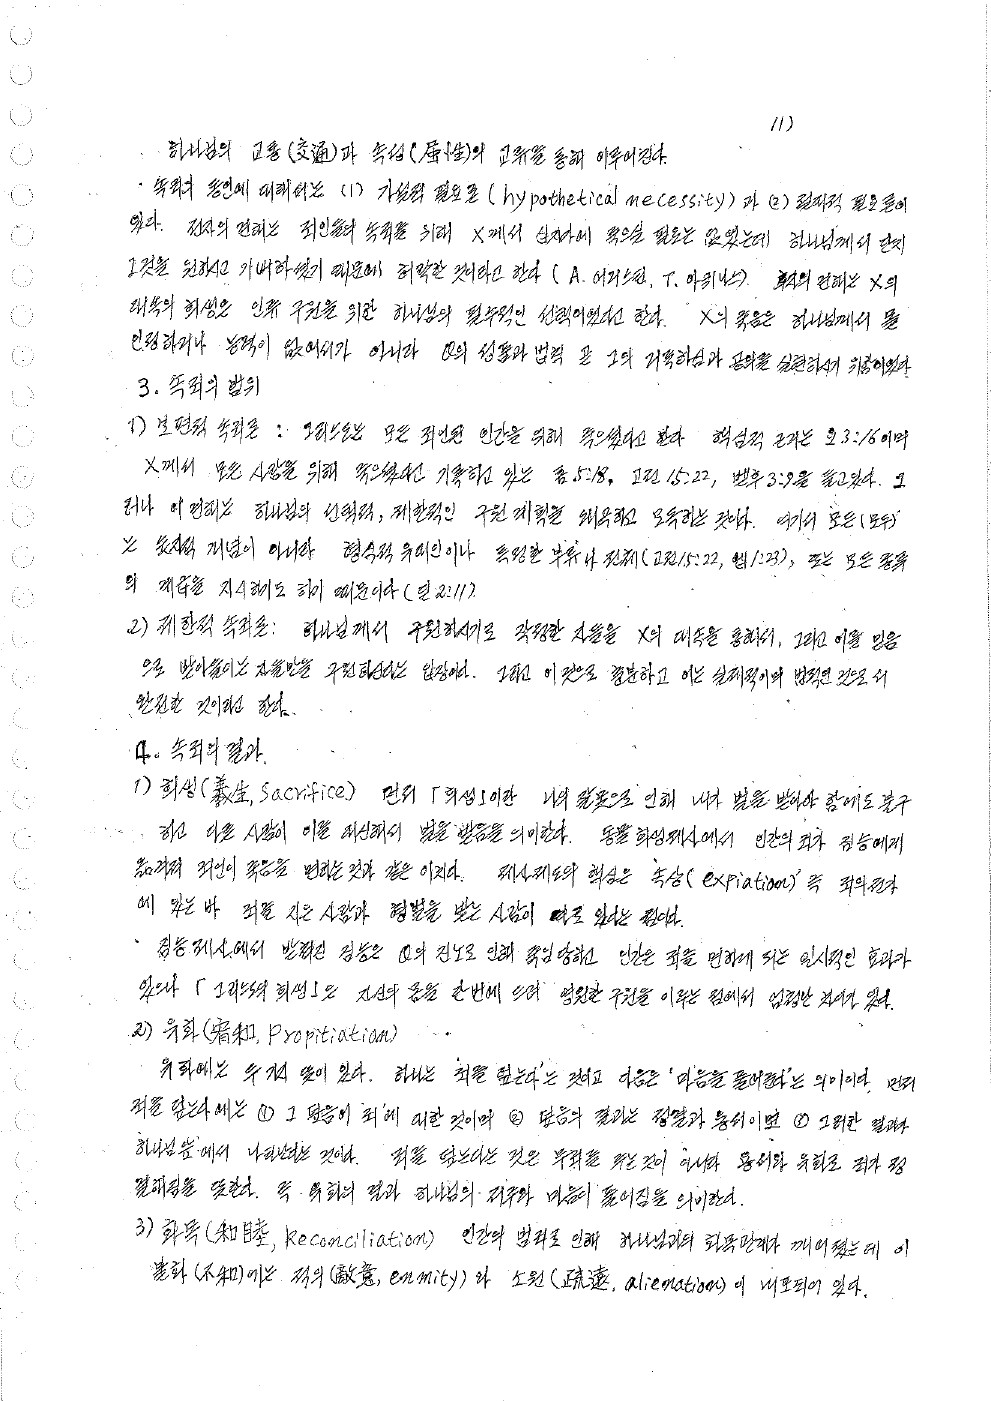 11)
하나님의 교통(交通)과 속성(属性)의 교류를 통해 이루어진다.
· 속죄의 동인에 대해서는 (1) 가설적 필요론 (hypothetical necessity) 과 (2) 절대적 필요론이
있다. 전자의 견해는 죄인들의 속죄를 위해 X께서 십자가에 죽으실 필요는 없었는데 하나님께서 단지
그것을 원하시고 기뻐하셨기 때문에 허락한 것이라고 한다 (A. 어거스틴, T. 아퀴나스). 후자의 견해는 X의
대속의 희생은 인류 구원을 위한 하나님의 필수적인 선택이었다고 한다. X의 죽음은 하나님께서 몰
인정하거나 능력이 없어서가 아니라 Q의 성품과 법칙 곧 그의 거룩하심과 공의를 실현하시기 위함이었다
3. 속죄의 범위
1) 보편적 속죄론 : 그리스도는 모든 죄인된 인간을 위해 죽으셨다고 한다 핵심적 근거는 요3:16이며
X께서 모든 사람을 위해 죽으셨다고 기록하고 있는 롬5:18, 고전15:22, 벧후3:9을 들고있다. 그
러나 이 견해는 하나님의 선택적, 제한적인 구원 계획을 왜곡하고 모독하는 것이다. 여기서 모든(모두)
는 숫자적 개념이 아니라 형식적 유대인이나 특정한 부류나 전체(고전15:22, 엡1:23), 또는 모든 종류
의 계급을 지시하기도 하기 때문이다 (딛2:11)
2) 제한적 속죄론: 하나님께서 구원하시기로 작정한 자들을 X의 대속을 통해서, 그리고 이를 믿음
으로 받아들이는 자들만을 구원하신다는 입장이다. 그리고 이것으로 충분하고 이는 실제적이며 법적인 것으로서
완전한 것이라고 한다.
4. 속죄의 결과
1) 희생(羲生, Sacrifice) 먼저 「희생」이란 나의 잘못으로 인해 내가 벌을 받아야 함에도 불구
하고 다른 사람이 이를 대신해서 벌을 받음을 의미한다. 동물 희생제사에서 인간의 죄가 짐승에게
옮겨져 죄인이 죽음을 면하는 것과 같은 이치다. 제사제도의 핵심은 속상(expiation) 즉 죄의 전가
에 있는 바 죄를 지은 사람과 형벌을 받는 사람이 따로 있다는 점이다.
· 짐승제사에서 바쳐진 짐승은 Q의 진노로 인해 죽임 당하고 인간은 죄를 면하게 되는 일시적인 효과가
있으나 「그리스도의 희생」은 자신의 몸을 한번에 드려 영원한 구원을 이루는 점에서 엄청난 차이가 있다.
2) 유화(宥和, Propitiation)
유화에는 두가지 뜻이 있다. 하나는 '죄를 덮는다'는 것이고 다음은 '마음을 풀어준다'는 의미이다. 먼저
죄를 덮는다에는 ① 그 덮음이 '죄'에 대한 것이며 ② 덮음의 결과는 정결과 용서이며 ③ 그러한 결과가
'하나님 앞'에서 나타난다는 것이다. 죄를 덮는다는 것은 무죄를 뜻는것이 아니라 용서와 유화로 죄가 정
결해짐을 뜻한다. 즉 유화의 결과 하나님의 저주와 마음이 풀어짐을 의미한다.
3) 화목(和睦, Reconciliation) 인간의 범죄로 인해 하나님과의 화목관계가 깨어졌는데 이
불화(不和)에는 적의(敵意, enmity)와 소원(疏遠, alienation)이 내포되어 있다.